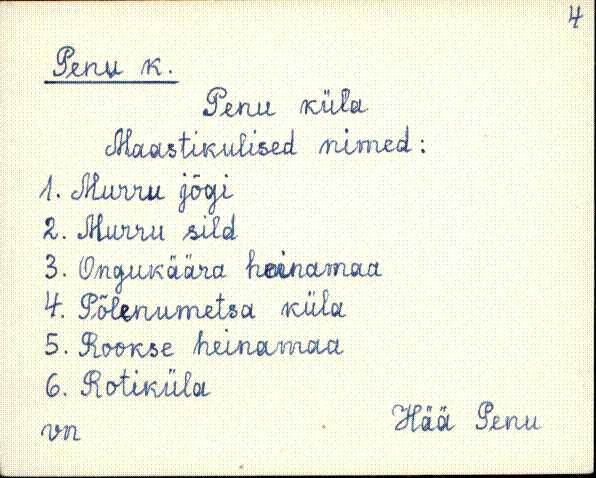 4
Penu k.
Penu küla
Maastikulised nimed:
1. Murru jõgi
2. Murru sild
3. Ongukäära heinamaa
4. Põlenumetsa küla
5. Rookse heinamaa
6. Rotiküla
vn Hää Penu